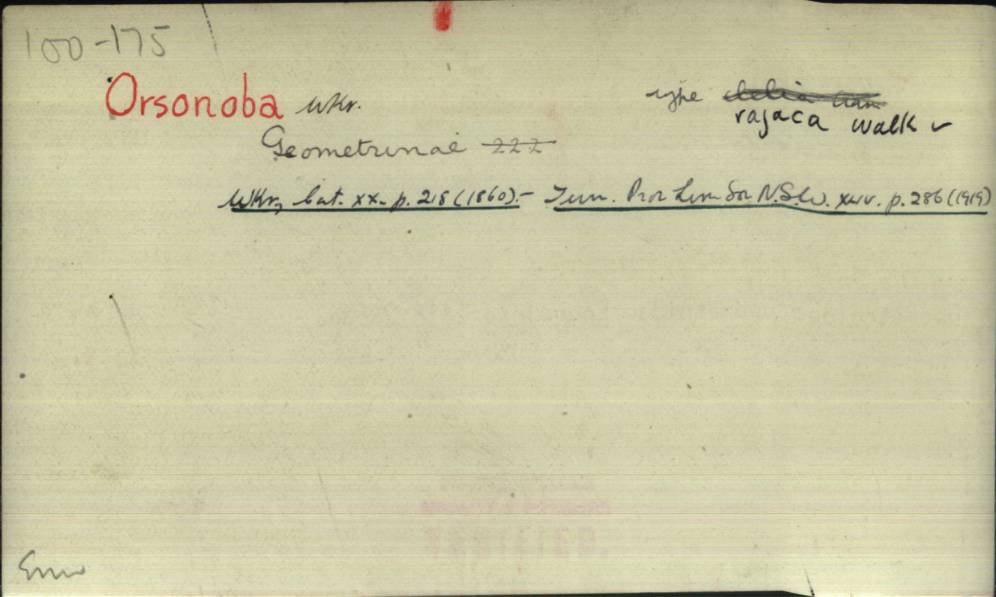 100-175
Orsonoba Wkr.
type
rajaca Walk
Geometrinae 222
Wkr, Cat. xx. p. 218 (1860). - Turn. Proc Linn Soc N.S.W. xliv. p. 286 (1919)